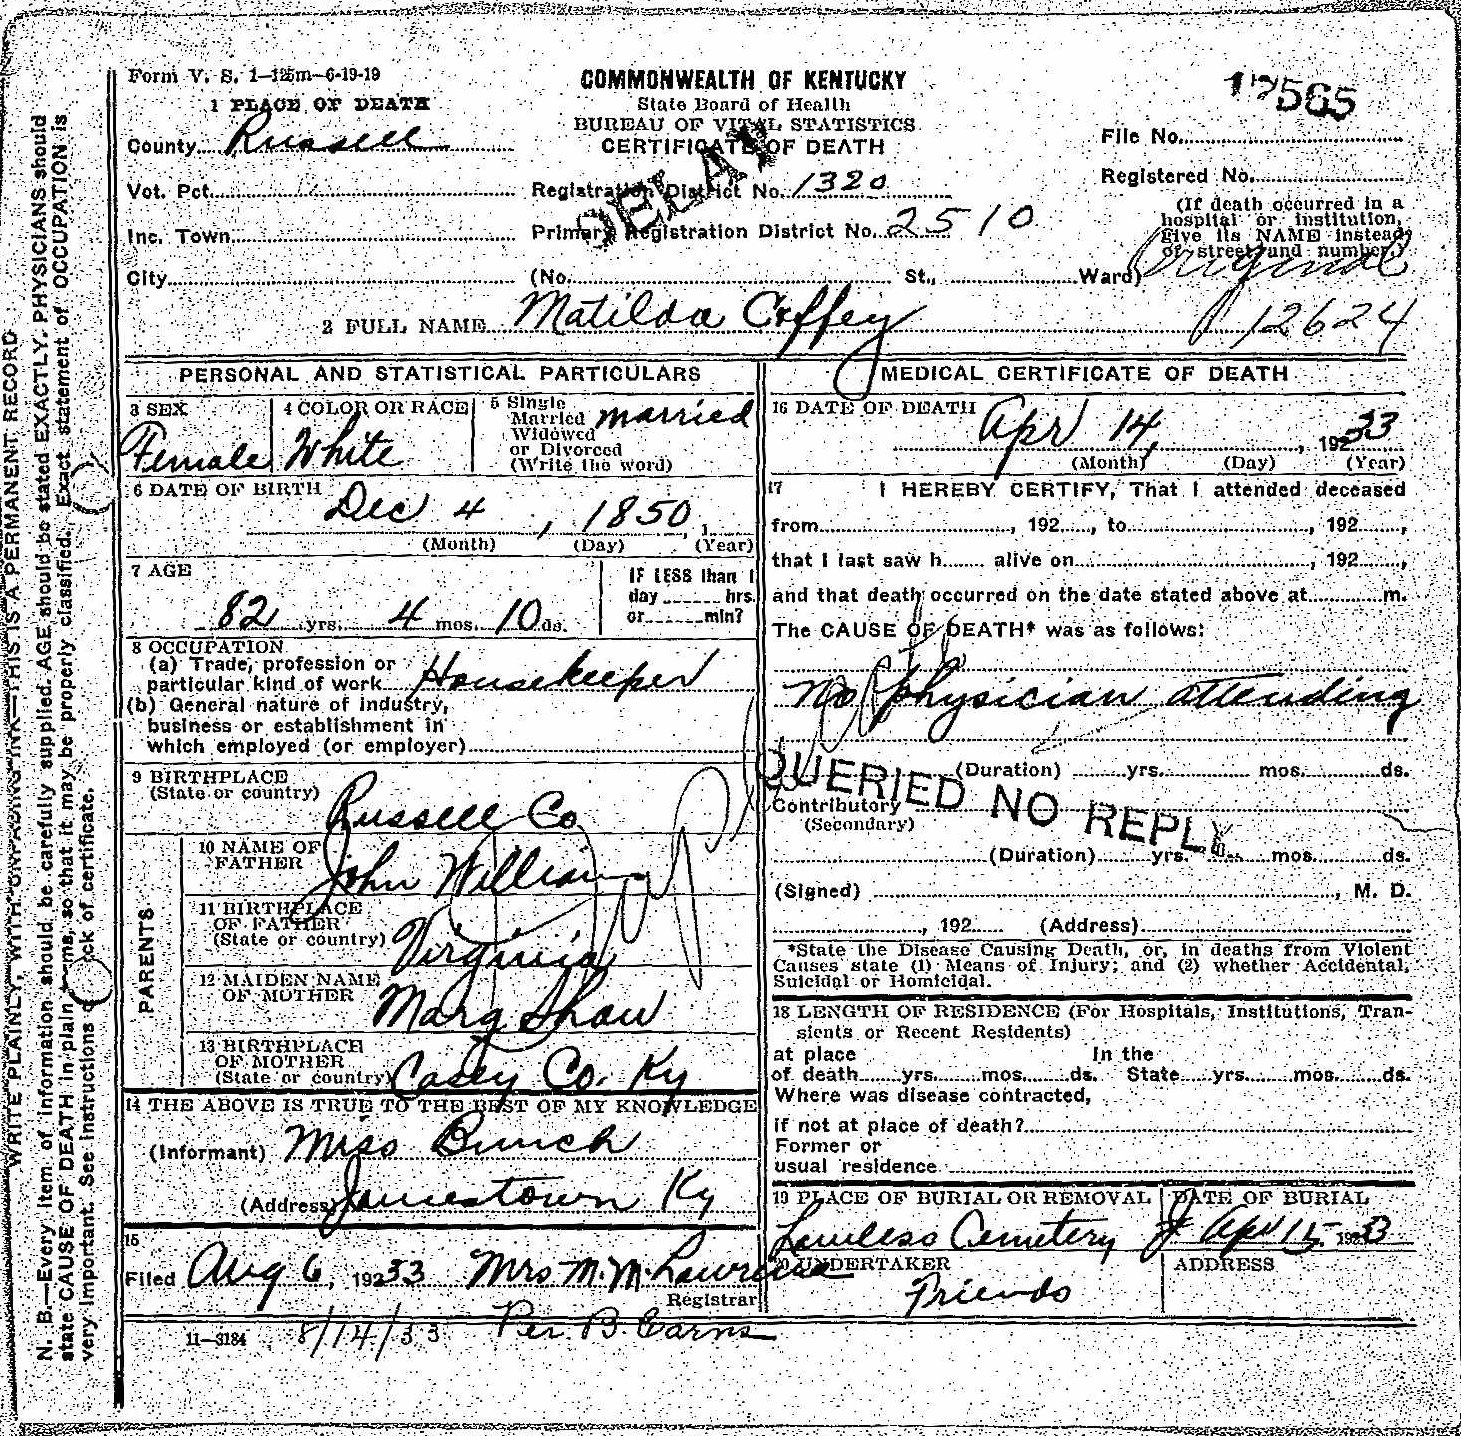 Form V. S. 1—125m—6-19-19
COMMONWEALTH OF KENTUCKY
State Board of Health
BUREAU OF VITAL STATISTICS
CERTIFICATE OF DEATH
565
1 PLACE OF DEATH
County Russell
File No.
Vot. Pct.
Registration District No. 1320
Registered No.
DELAY
Inc. Town
Primary Registration District No. 2510
(If death occurred in a
hospital or institution,
give its NAME instead
of street and number.)
City
(No. St., Ward)
Original
2 FULL NAME Matilda Coffey
12624
PERSONAL AND STATISTICAL PARTICULARS
3 SEX
Female
4 COLOR OR RACE
White
5 Single
Married
Widowed
or Divorced
(Write the word)
married
6 DATE OF BIRTH
Dec 4, 1850, 1
(Month) (Day) (Year)
7 AGE
82 yrs. 4 mos. 10 ds.
IF LESS than 1
day hrs.
or min?
8 OCCUPATION
(a) Trade, profession or
particular kind of work Housekeeper
(b) General nature of industry,
business or establishment in
which employed (or employer)
9 BIRTHPLACE
(State or country)
Russell Co
PARENTS
10 NAME OF
FATHER
John Williams
11 BIRTHPLACE
OF FATHER
(State or country)
Virginia
12 MAIDEN NAME
OF MOTHER
Marg Shaw
13 BIRTHPLACE
OF MOTHER
(State or country)
Casey Co. Ky
14 THE ABOVE IS TRUE TO THE BEST OF MY KNOWLEDGE
(Informant) Miss Bunch
(Address) Jamestown Ky
15
Filed Aug 6, 19233 Mrs M. M. Lawrence
Registrar
11—3184 8/14/33 Per. B. Earns
MEDICAL CERTIFICATE OF DEATH
16 DATE OF DEATH
Apr 14, , 19233
(Month) (Day) (Year)
17 I HEREBY CERTIFY, That I attended deceased
from , 192 , to , 192 ,
that I last saw h alive on , 192 ,
and that death occurred on the date stated above at m.
The CAUSE OF DEATH* was as follows:
No physician attending
(Duration) yrs. mos. ds.
QUERIED NO REPLY
Contributory
(Secondary)
(Duration) yrs. mos. ds.
(Signed) , M. D.
, 192 (Address)
*State the Disease Causing Death, or, in deaths from Violent
Causes state (1) Means of Injury; and (2) whether Accidental,
Suicidal or Homicidal.
18 LENGTH OF RESIDENCE (For Hospitals, Institutions, Tran-
sients or Recent Residents)
at place In the
of death yrs. mos. ds. State yrs. mos. ds.
Where was disease contracted,
if not at place of death?
Former or
usual residence
19 PLACE OF BURIAL OR REMOVAL
Lawless Cemetery
DATE OF BURIAL
Apr 15 1923
20 UNDERTAKER
Friends
ADDRESS
WRITE PLAINLY, WITH UNFADING INK—THIS IS A PERMANENT RECORD
N. B.—Every item of information should be carefully supplied. AGE should be stated EXACTLY. PHYSICIANS should
state CAUSE OF DEATH in plain terms, so that it may be properly classified. Exact statement of OCCUPATION is
very important. See instructions on back of certificate.